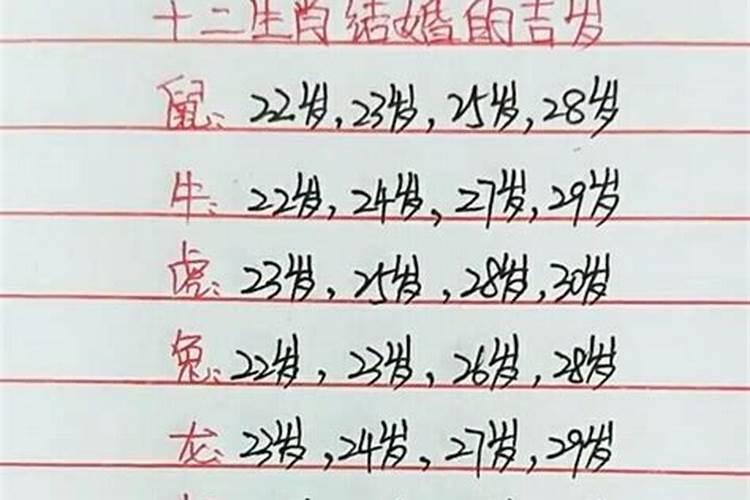 十二生肖结婚的吉岁
鼠: 22岁, 23岁, 25岁, 28岁
牛: 22岁, 24岁, 27岁, 29岁
虎: 23岁, 25岁, 28岁, 30岁
兔: 22岁, 23岁, 26岁, 28岁
龙: 23岁, 24岁, 27岁, 29岁